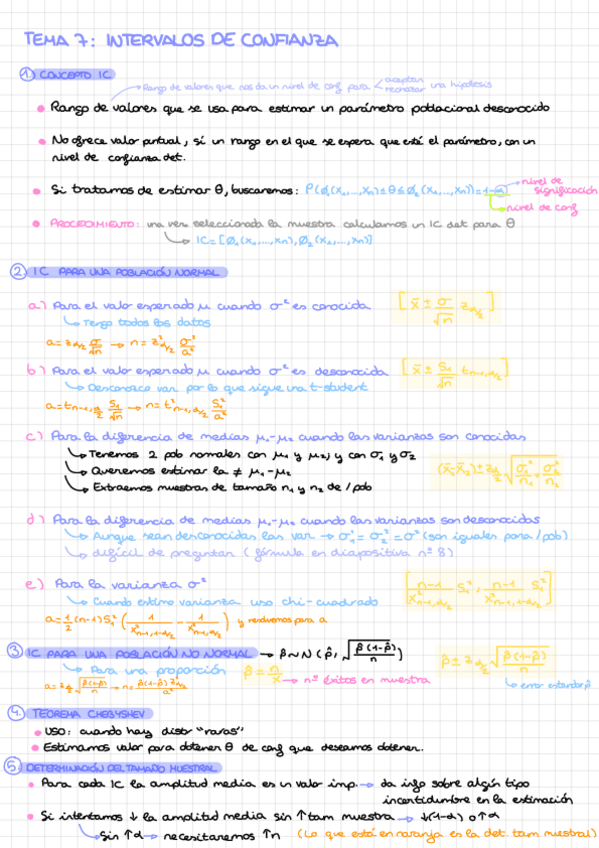 TEMA 7: INTERVALOS DE CONFIANZA
1. CONCEPTO IC
Rango de valores que nos da un nivel de conf para < aceptar rechazar una hipótesis
• Rango de valores que se usa para estimar un parámetro poblacional desconocido
• No ofrece valor puntual, sí un rango en el que se espera que esté el parámetro, con un
nivel de confianza det.
• Si tratamos de estimar θ, buscaremos: P(∅₁(x₁,...,xn) ≤ θ ≤ ∅₂(x₁,...,xn)) = 1-α → nivel de significación
nivel de conf
• PROCEDIMIENTO: una vez seleccionada la muestra calculamos un IC det para θ
IC = [∅₁(x₁,...,xn), ∅₂(x₁,...,xn)]
2. IC PARA UNA POBLACIÓN NORMAL
a) Para el valor esperado μ cuando σ² es conocida [x̄ ± σ/√n z α/2]
Tengo todos los datos
a = z α/2 σ/√n → n = z² α/2 σ²/a²
b) Para el valor esperado μ cuando σ² es desconocida [x̄ ± S₁/√n t n-1,α/2]
Desconozco var. por lo que sigue una t-student
a = t n-1,α/2 S₁/√n → n = t² n-1,α/2 S₁²/a²
c) Para la diferencia de medias μ₁-μ₂ cuando las varianzas son conocidas
Tenemos 2 pob normales con μ₁ y μ₂ y con σ₁ y σ₂
Queremos estimar la ≠ μ₁-μ₂ (x̄₁-x̄₂) ± z α/2 √(σ₁²/n₁ + σ₂²/n₂)
Extraemos muestras de tamaño n₁ y n₂ de / pob
d) Para la diferencia de medias μ₁-μ₂ cuando las varianzas son desconocidas
Aunque sean desconocidas las var → σ₁² = σ₂² = σ² (son iguales para / pob)
difícil de preguntar (fórmula en diapositiva nº 8)
e) Para la varianza σ² [n-1/χ² n-1,α/2 S₁², n-1/χ² n-1,1-α/2 S₁²]
Cuando estimo varianza uso chi-cuadrado
a = 1/2 (n-1) S₁² (1/χ² n-1,1-α/2 - 1/χ² n-1,α/2) y resolvemos para a
3. IC PARA UNA POBLACIÓN NO NORMAL → p̂ ~ N(p̂, √(p̂(1-p̂)/n))
Para una proporción p̂ = n/x → nº éxitos en muestra p̂ ± z α/2 √(p̂(1-p̂)/n)
a = z α/2 √(p̂(1-p̂)/n) → n = p̂(1-p̂) z² α/2/a² error estándar p̂
4. TEOREMA CHEBYSHEV
• USO: cuando hay distr "raras"
• Estimamos valor para obtener θ de conf que deseamos obtener.
5. DETERMINACIÓN DEL TAMAÑO MUESTRAL
• Para cada IC la amplitud media es un valor imp. → da info sobre algún tipo
incertidumbre en la estimación
• Si intentamos ↓ la amplitud media sin ↑ tam muestra → ↓(1-α) o ↑α
Sin ↑α → necesitaremos ↑n (Lo que está en naranja es la det. tam muestral)